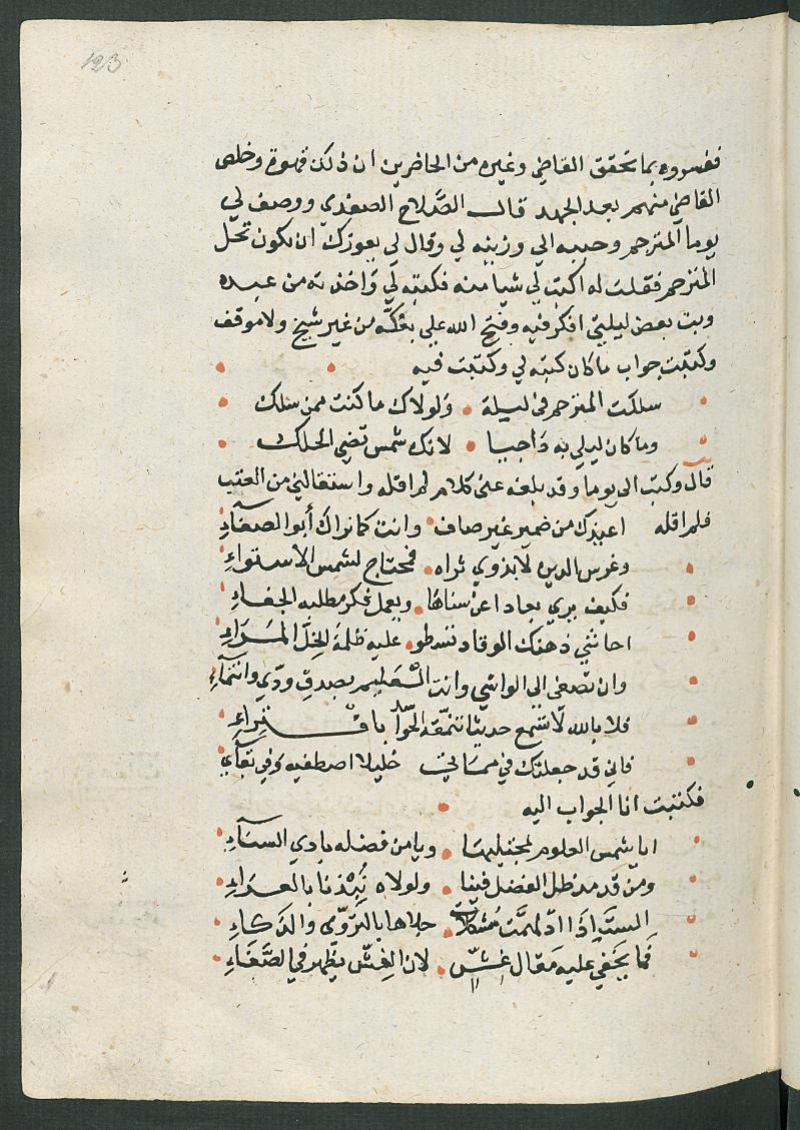 123
ففسروه بما تحقق القاضي وغيره من الحاضرين ان ذلك قهوة وخلص
القاضي منهم بعد الجهد قال الصَّلاح الصفدي ووصف لي
يوما المترجم وحببه الي وزينه لي وقال لي يعوزك ان تكون تحل
المترجم فقلت له اكتب لي شيا منه فكتبه لي واخذته من عنده
وبت بعض ليلتي افكر فيه وفتح الله علي بفكّه من غير شيخ ولا موقف
وكتبت جواب ما كان كتبه لي وكتبت فيه
سلكت المترجم في ليلة ولولاك ما كنت ممن سلك
وما كان ليلي به داجيا لانك شمس تضي الحلك
قال وكتب الي يوما وقد بلغه عني كلام لم اقله واستقالني من العتب
فلم اقله اعيذك من ضمير غير صاف وانت كما نراك أبو الصفآءِ
وغرس الدين لا يذوي ثراه فمحتاج لشمس الاستواءِ
فكيف يري بعادا عن سناها ويعمل فكر مطلبه الجفاءِ
احاشي ذهنك الوقاد تسطو عليه ظلمة الخِلّ المرَاءِ
وان تصغي الي الواشي وانت الْعَليم بصدق ودّي وانتمآءِ
فلا بالله لا تسمع حديثا تنمقه الحوّا با فْترِاءِ
فاني قد جعلتك في مماتي خليلا اصطفيه وفي بقآي
فكتبت انا الجواب اليه
ايا شمس العلوم لمجتليها ويا من فضله بادي السنآءِ
ومن قد مد ظل الفضل فينا ولولاه نُبْذنا بالعراءِ
الستَ إذَا ادلهمَّت مُشكلات جلاها بالتروّي والذكاءِ
فَما يخفي عليه مَقال غشٍّ لان الغِشّ يظهر في الصَّفَاءِ